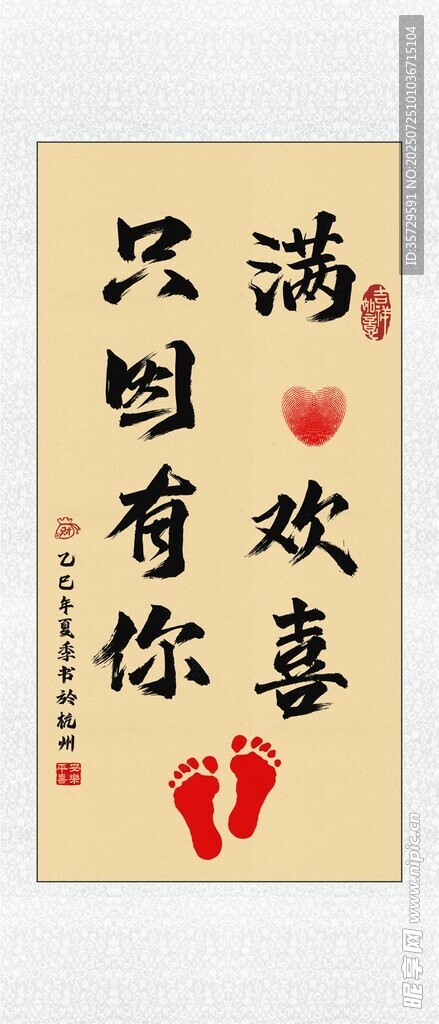 满欢喜
只因有你
吉祥如意
财
乙巳年夏季书於杭州
安樂平喜
ID:35729591 NO:20250725101036715104
昵享网 www.nipic.cn